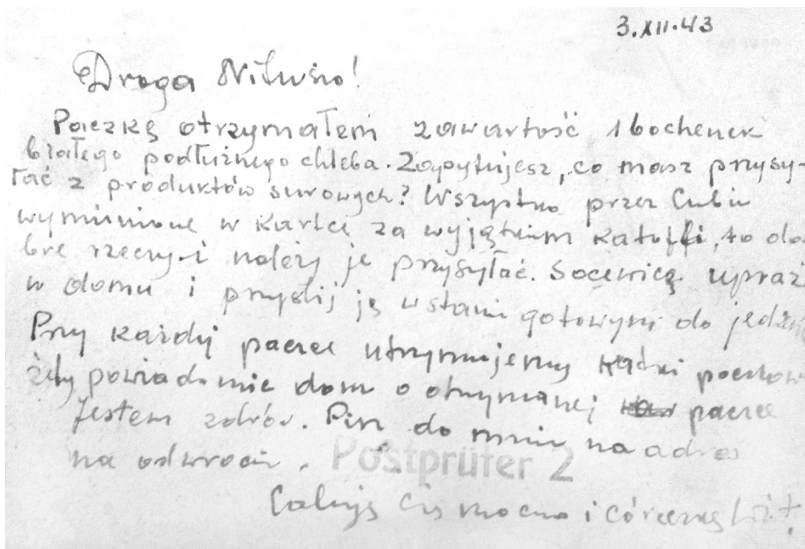 3.XII.43
Droga Nilusio!
Paczkę otrzymałem zawartość 1 bochenek
białego podłużnego chleba. Zapytujesz, co masz przysy-
łać z produktów surowych? Wszystko przez
wymienione w kartce za wyjątkiem to do-
bre rzeczy i należy je przysyłać. upraż
w domu i przyślij ją w stanie gotowym do
Przy każdej paczce utrzymujemy
żeby powiadomić dom o otrzymanej paczce
Jestem zdrów. Pisz do mnie na adres
na odwrocie.
Postprüfer 2
Całuję Cię mocno i córeczkę